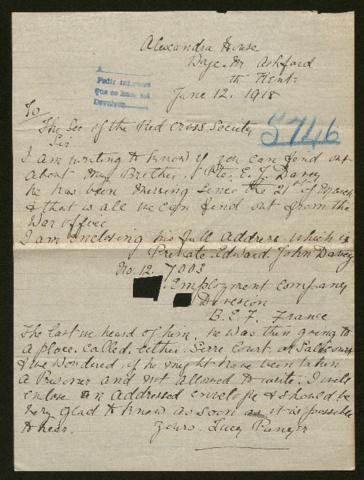 Alexandra House
Wye. Nr Ashford
Kent
June 12. 1918
To
The Sec of the Red Cross Society
5746
Sir
I am writing to know if you can find out
about my Brother. Pte. E. J. Davey
he has been missing since the 21st of March
& that is all we can find out from the
War office
I am enclosing his full address which is
Private. Edward. John Davey
No. 12. 7003
Employment Company
Division
B. E. F. France
The last we heard of him. he was then going to
a place. called. either. Serre Court or
& we wondered. if he might have been taken
a Prisoner and not allowed to write. I will
enclose an addressed envelope & should be
very glad to know as soon as it is possible
to hear. Yours. Lucy